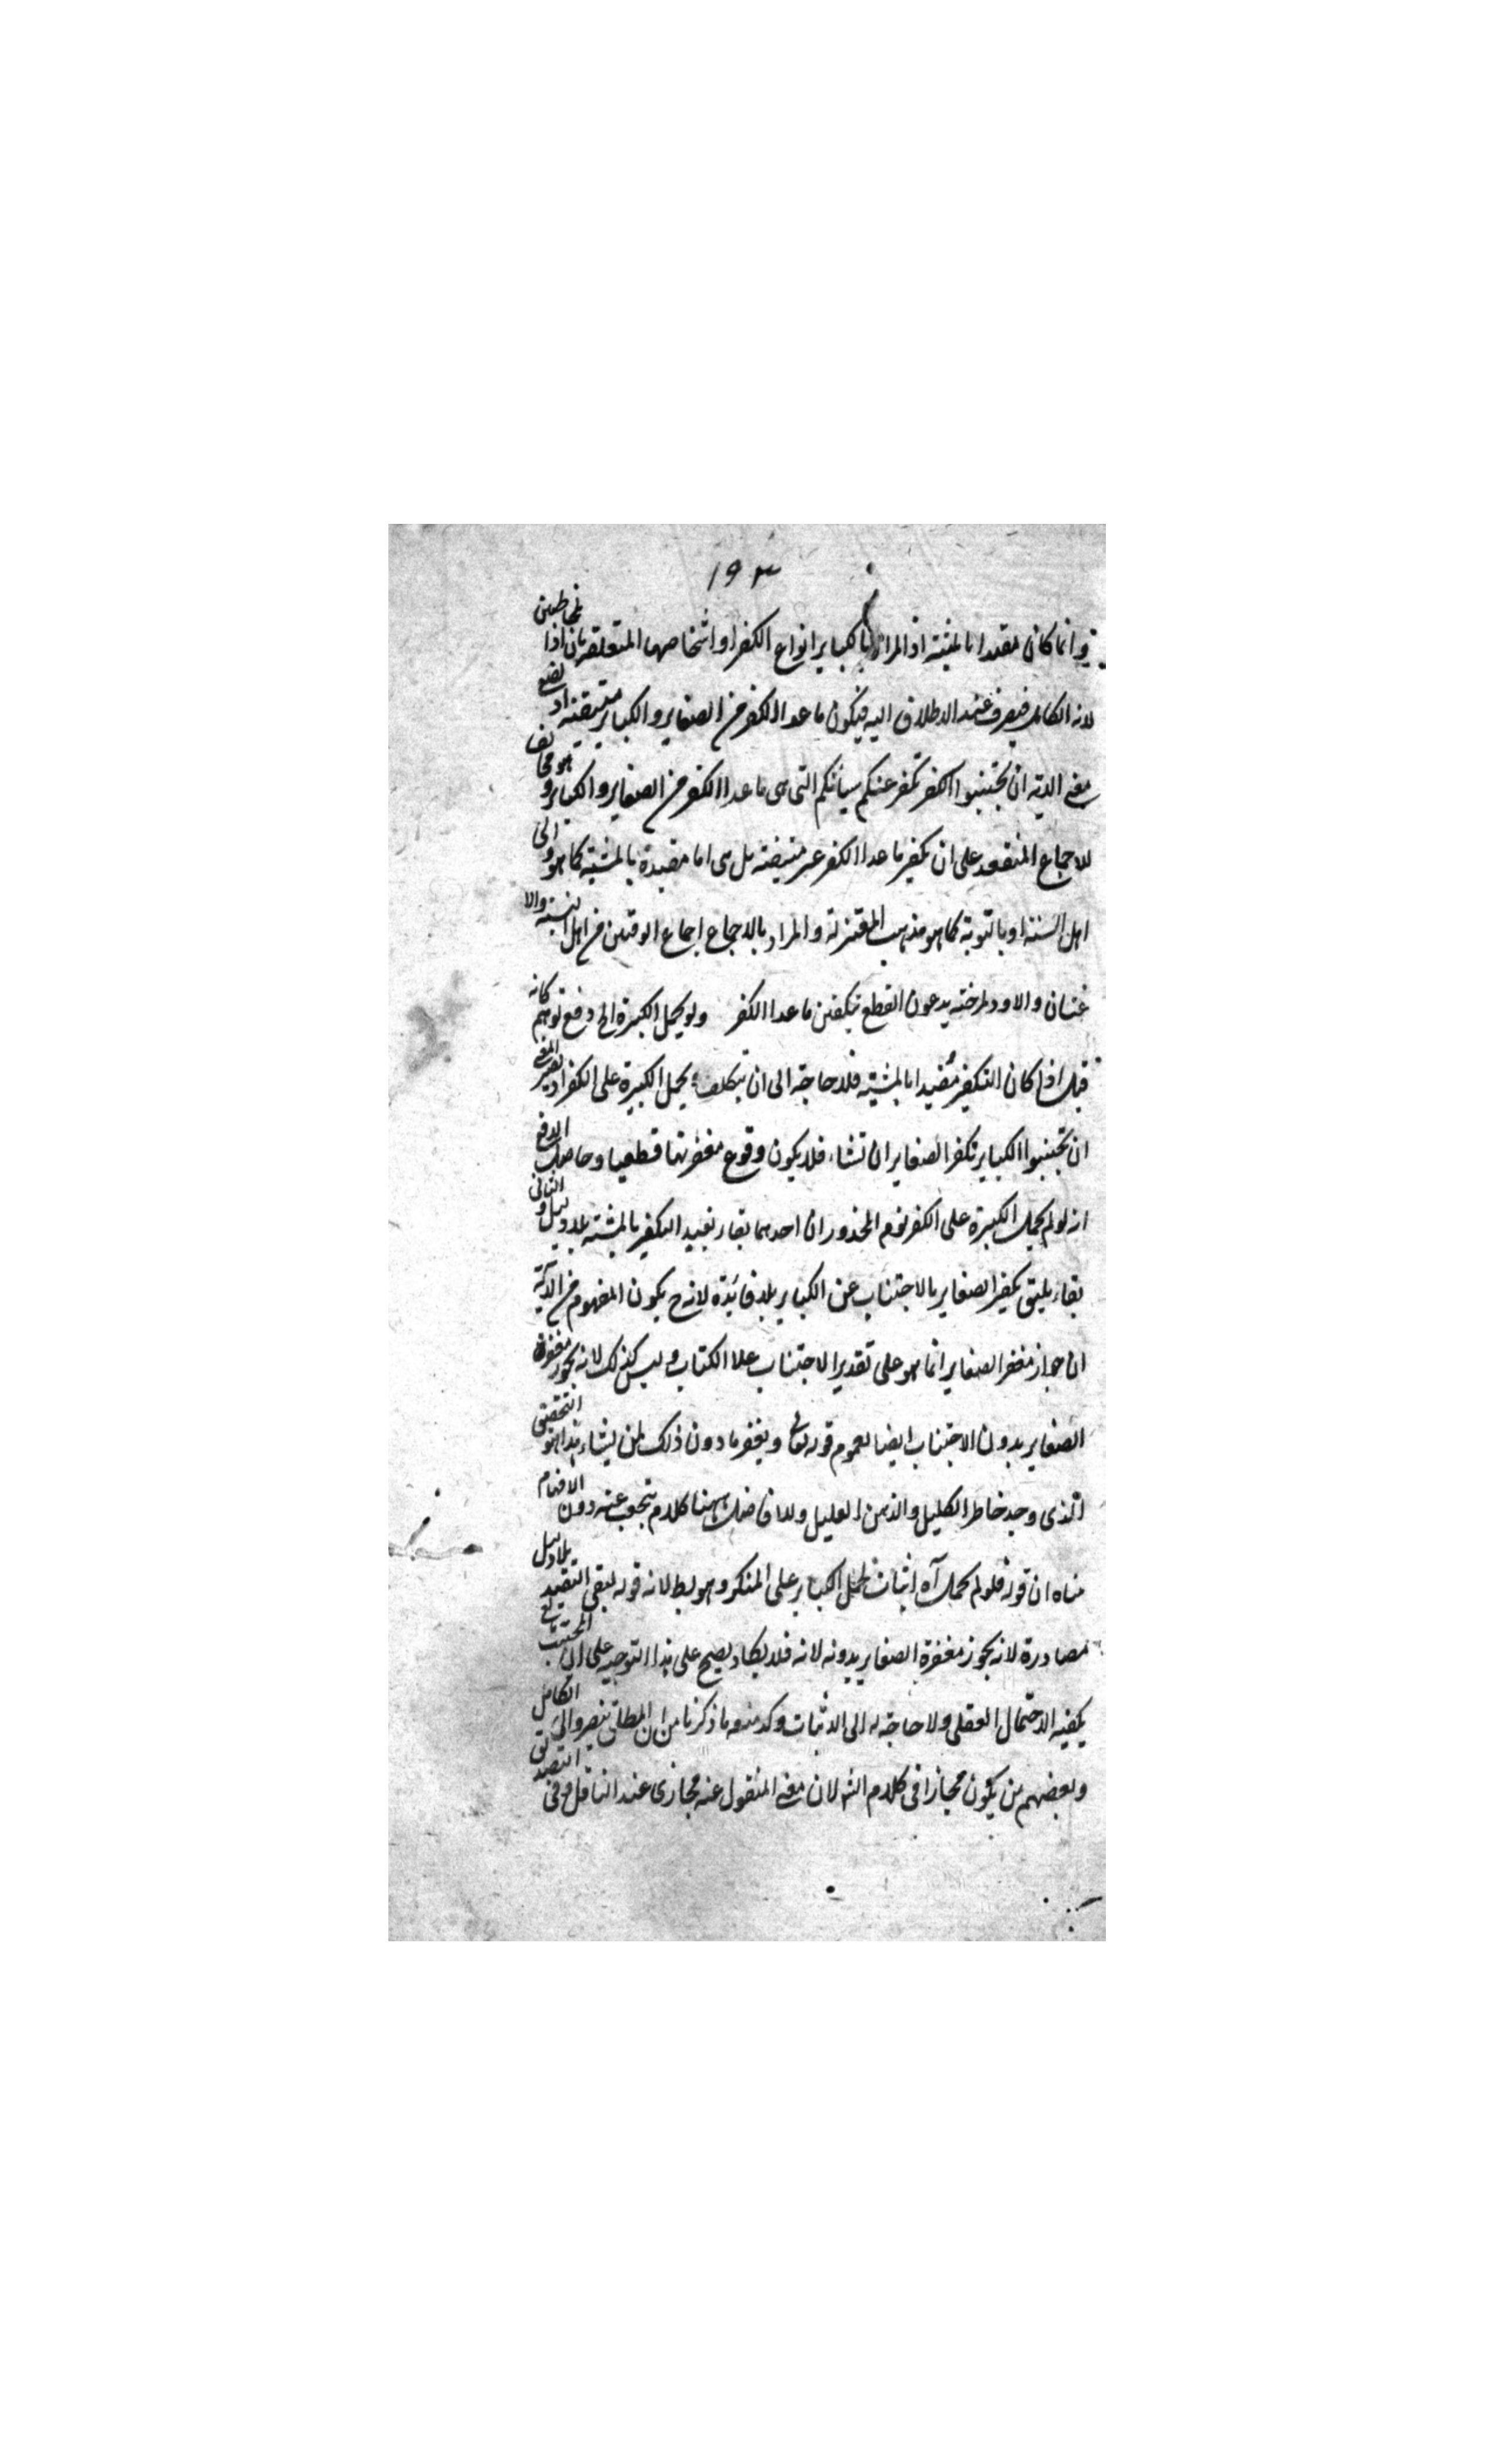 ١٩٣
وانما كان مقيدا بالمشية اذ المراد بالكباير انواع الكفر او اشخاصها المتعلقة بان اذا مخاطبين
لانه الكامل فيصرف عند الاطلاق اليه فيكون ما عدا الكفر من الصغاير والكباير متيقنة اذ يصير
معنى الاية ان تجتنبوا الكفر نكفر عنكم سياتكم التى هى ما عدا الكفر من الصغاير والكباير وهو مخالف
للاجماع المنعقد على ان تكفير ما عدا الكفر غير متيقنة بل هى اما مقيدة بالمشية كما هو
اهل السنة او بالتوبة كما هو مذهب المعتزلة والمراد بالاجماع اجماع الوقتين من اهل السنة والا
غسان والا ود المرخته يدعون القطع تبكفين ما عدا الكفر ولو يحمل الكبيرة الخ دفع توهم كانه
قيل اذا كان التكفير مقيدا بالمشية فلا حاجة الى ان يتكلف بحمل الكبيرة على الكفر اذ يصير المعنى
ان تجتنبوا الكباير نكفر الصغاير ان نشاء فلا يكون وقوع مغفرتها قطعيا وحاصل الدفع
انه لو لم يحمل الكبيرة على الكفر لزم المحذوران احدهما بقاء تقييد التكفير بالمشية بلا دليل والثانى
بقاء تعليق تكفير الصغاير بالاجتناب عن الكباير بلا فائدة لانه ح يكون المفهوم من الاية
ان جواز مغفر الصغاير انما هو على تقدير الاجتناب علا الكتاب وليس كذلك لانه يجوز مغفرة
الصغاير بدون الاجتناب ايضا لعموم قوله تعالى ويغفر ما دون ذلك لمن يشاء هذا هو التحقيق
الذى وجد خاطر الكليل والذهن العليل وللافاضل ههنا كلام يتجوب عنه دون الافهام
مناه ان قوله فلو لم يحمل آه اثبات لحمل الكباير على المنكر وهو بط لانه قوله لبقى التقييد بلا دليل
مصادرة لانه يجوز مغفرة الصغاير بدونه لانه فلا يكاد يصح على هذا التوجيه على ان المجتنب
يكفيه الاحتمال العقلى ولا حاجة له الى الاثبات وكد منعه ما ذكرنا من ان المطلق ينصرف الى الكامل
وبعضهم من يكون مجازا فى كلام الش لان معنى المنقول عنه مجازى عند الناقل وفى التصديق